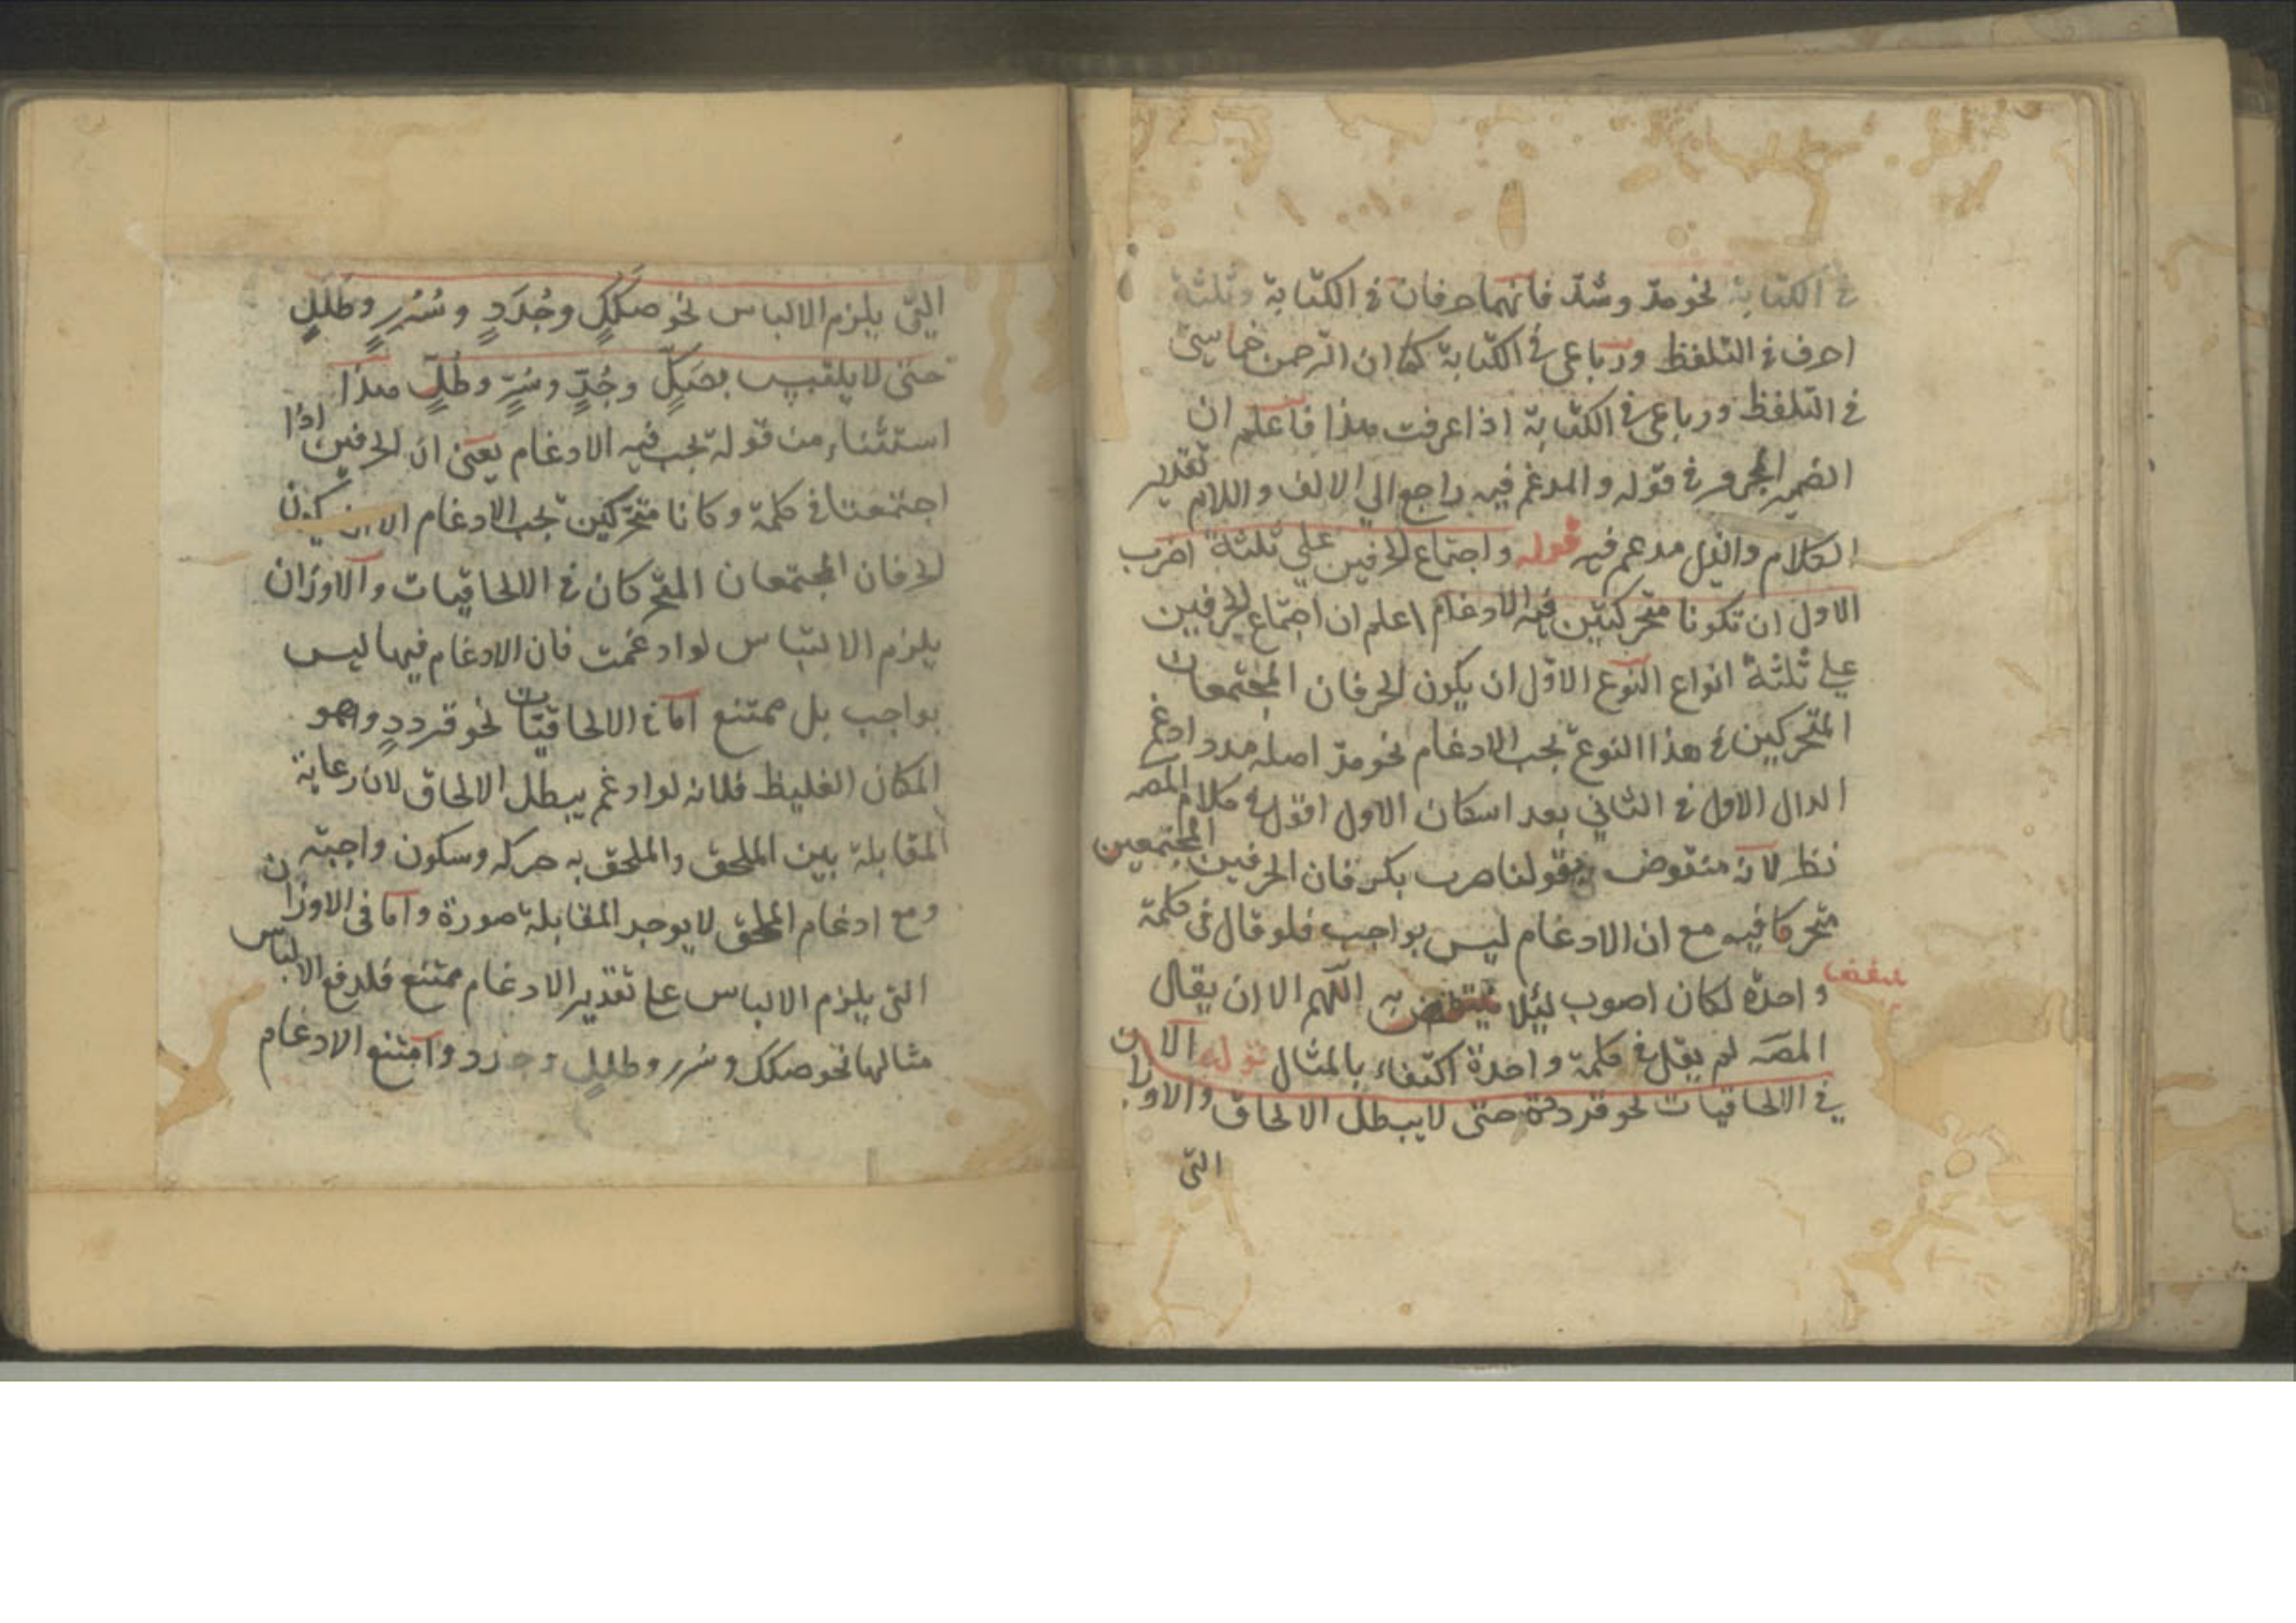 في الكتابة نحو مدّ وشدّ فانهما حرفان في الكتابة وثلثة
احرف في التلفظ ورباعي في الكتابة كما ان الرحمن خماسي
في التلفظ ورباعي في الكتابة اذا عرفت هذا فاعلم ان
الضمير المجرور في قوله والمدغم فيه راجع الي الالف واللام تقدير
الكلام والذي مدغم فيه قوله واجتماع الحرفين علي ثلثة اضرب
الاول ان تكونا متحركتين فيه الادغام اعلم ان اجتماع الحرفين
علي ثلثة انواع النوع الاوّل ان يكون الحرفان المجتمعان
المتحركين في هذا النوع يجب الادغام نحو مدّ اصله مدد ادغم
الدال الاول في الثاني بعد اسكان الاول اقول في كلام المصـ
نظر لانه منقوض بقولنا ضرب بكر فان الحرفين المجتمعين
متحركا فيه مع ان الادغام ليس بواجب فلو قال في كلمة
واحدة لكان اصوب ليُلا ينتقض به اللّهم الا ان يقال
ينتقض
المصـ لم يقل في كلمة واحدة اكتفاء بالمثال قوله الا
في الالحاقيات نحو قردد حتى لا يبطل الالحاق والاوزان
التى
التى يلزم الالباس نحو صكَكٍ وجُدَدٍ وسُرُرٍ وطَلَلٍ
حتى لا يلتبس بصَكٍّ وجُدٍّ وسُرٍّ وطَلٍّ هذا
استثناء من قوله يجب فيه الادغام يعنى ان الحرفين اذا
اجتمعتا في كلمة وكانا متحرّكين يجب الادغام الا ان يكون
الحرفان المجتمعان المتحركان في الالحاقيات والاوزان
يلزم الالتباس لو ادغمت فان الادغام فيها ليس
بواجب بل ممتنع امّا في الالحاقيّات نحو قرددٍ وهو
المكان الغليظ فلانه لو ادغم يبطل الالحاق لان رعاية
المقابلة بين الملحق والملحق به حركه وسكون واجبة
ومع ادغام الملحق لا يوجد المقابلة صورة وامّا فى الاوزان
التى يلزم الالباس على تقدير الادغام ممتنع فلدفع الالباس
مثالها نحو صكك وسرر وطللٍ وجدد وامتنع الادغام